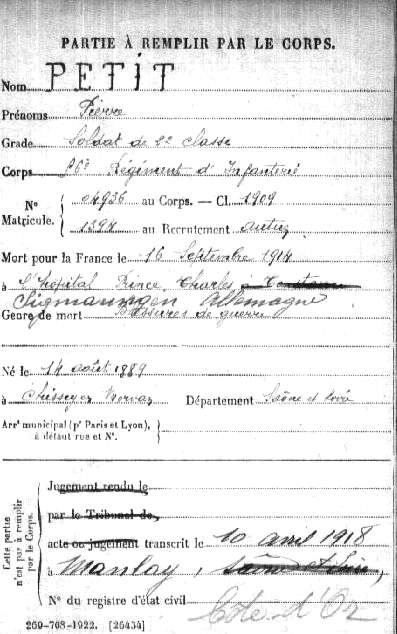 PARTIE À REMPLIR PAR LE CORPS.
Nom PETIT
Prénoms Pierre
Grade Soldat de 2e classe
Corps 56e Régiment d'Infanterie
N° Matricule. { 04936 au Corps. — Cl. 1909
1394 au Recrutement Autun
Mort pour la France le 16 Septembre 1914
à L'hôpital Prince Charles
Sigmaringen Allemagne
Genre de mort Blessures de guerre
Né le 14 août 1889
à Chissey en Morvan Département Saône et Loire
Arrt municipal (pr Paris et Lyon), à défaut rue et N°. {
Cette partie n'est pas à remplir par le Corps.
Jugement rendu le
par le Tribunal de
acte ou jugement transcrit le 10 avril 1918
à Manlay, Saône et Loire,
N° du registre d'état civil Côte-d'Or
269-708-1922. [26434]